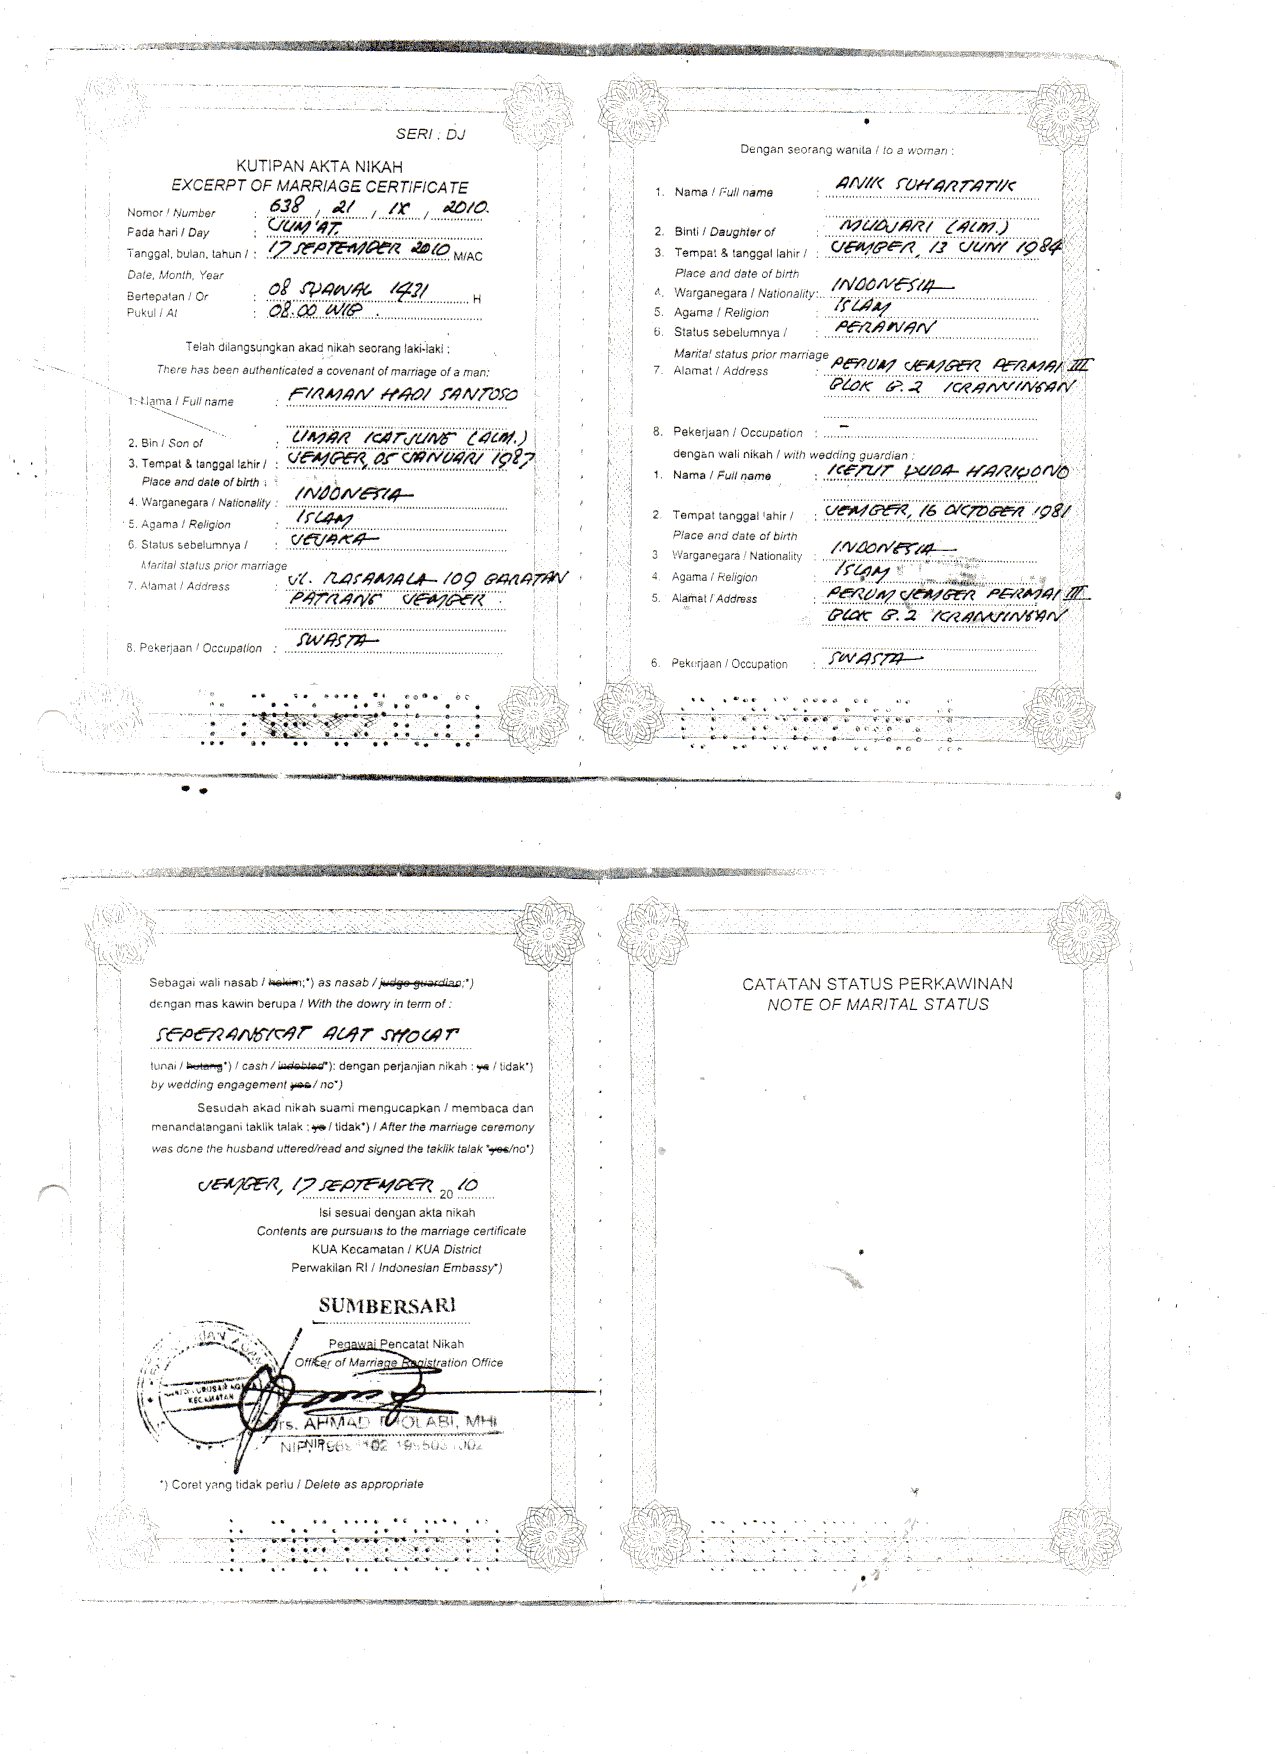 SERI : DJ
KUTIPAN AKTA NIKAH
EXCERPT OF MARRIAGE CERTIFICATE
Nomor / Number : 638 , 21 , IX , 2010.
Pada hari / Day : JUM'AT.
Tanggal, bulan, tahun / : 17 SEPTEMBER 2010 M/AC
Date, Month, Year
Bertepatan / Or : 08 SYAWAL 1431 H
Pukul / At : 08.00 WIB .
Telah dilangsungkan akad nikah seorang laki-laki :
There has been authenticated a covenant of marriage of a man:
1. Nama / Full name : FIRMAN HADI SANTOSO
2. Bin / Son of : UMAR KATJUNG (ALM.)
3. Tempat & tanggal lahir / : JEMBER, 05 JANUARI 1987
Place and date of birth :
4. Warganegara / Nationality : INDONESIA
5. Agama / Religion : ISLAM
6. Status sebelumnya / : JEJAKA
Marital status prior marriage
7. Alamat / Address : JL. RASAMALA 109 BARATAN
PATRANG JEMBER .
8. Pekerjaan / Occupation : SWASTA
Dengan seorang wanita / to a woman :
1. Nama / Full name : ANIK SUHARTATIK
2. Binti / Daughter of : MUDJARI (ALM.)
3. Tempat & tanggal lahir / : JEMBER, 13 JUNI 1984
Place and date of birth
4. Warganegara / Nationality: INDONESIA
5. Agama / Religion : ISLAM
6. Status sebelumnya / : PERAWAN
Marital status prior marriage
7. Alamat / Address : PERUM JEMBER PERMAI III
BLOK B.2 KRANJINGAN
8. Pekerjaan / Occupation : -
dengan wali nikah / with wedding guardian :
1. Nama / Full name : KETUT YUDA HARIYONO
2. Tempat tanggal lahir / : JEMBER, 16 OKTOBER 1981
Place and date of birth
3 Warganegara / Nationality : INDONESIA
4. Agama / Religion : ISLAM
5. Alamat / Address : PERUM JEMBER PERMAI III
BLOK B.2 KRANJINGAN
6. Pekerjaan / Occupation : SWASTA
Sebagai wali nasab / hakim;*) as nasab / judge guardian;*)
dengan mas kawin berupa / With the dowry in term of :
SEPERANGKAT ALAT SHOLAT
tunai / hutang*) / cash / indebted*): dengan perjanjian nikah : ya / tidak*)
by wedding engagement yes / no*)
Sesudah akad nikah suami mengucapkan / membaca dan
menandatangani taklik talak : ya / tidak*) / After the marriage ceremony
was done the husband uttered/read and signed the taklik talak *yes/no*)
JEMBER, 17 SEPTEMBER 2010
Isi sesuai dengan akta nikah
Contents are pursuans to the marriage certificate
KUA Kecamatan / KUA District
Perwakilan RI / Indonesian Embassy*)
SUMBERSARI
Pegawai Pencatat Nikah
Officer of Marriage Registration Office
KECAMATAN
Drs. AHMAD CHOLABI, MHI
NIP.
*) Coret yang tidak perlu / Delete as appropriate
CATATAN STATUS PERKAWINAN
NOTE OF MARITAL STATUS